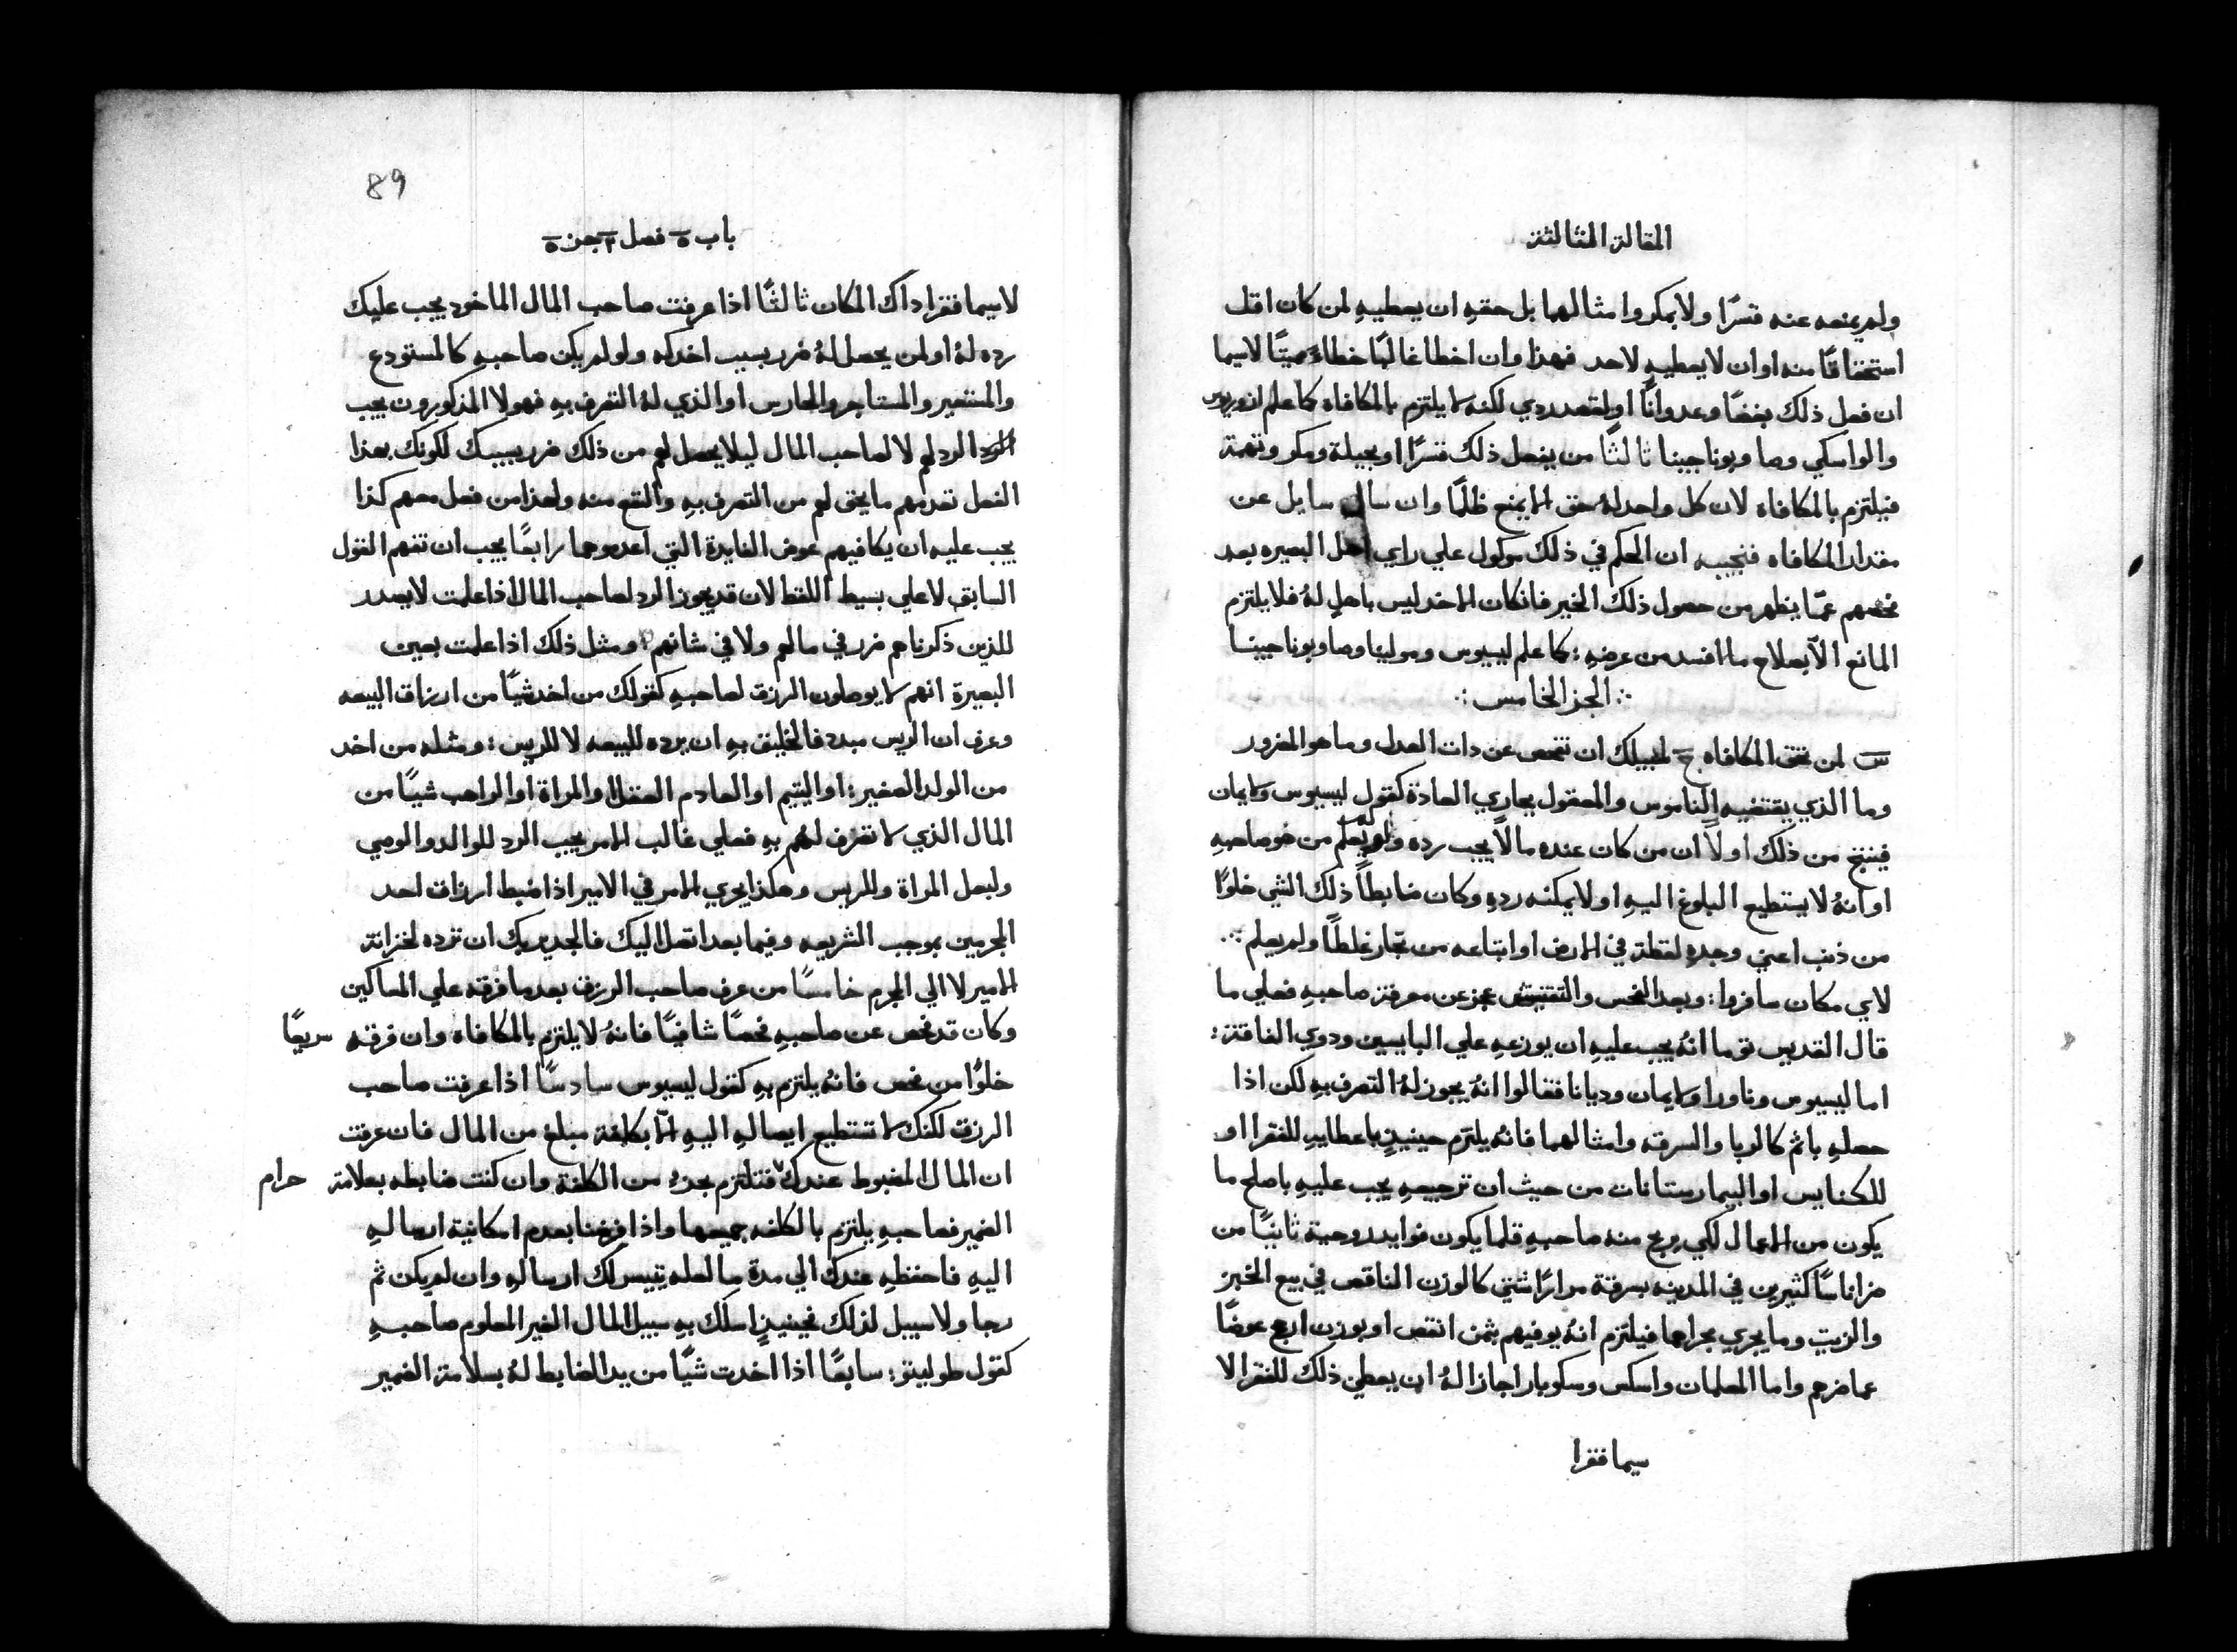 المقالة الثالثة
ولم يمنعه عنه قسرًا ولا بمكر وامثالهما بل حقهِ ان يعطيهِ لمن كان اقل
استحقاقًا منه او ان لا يعطيهِ لاحد فهذا وان اخطا غالبًا خطاءً مميتًا لاسيما
ان فعل ذلك بغضًا وعدوانًا او لقصد ردي لكنه لا يلتزم بالمكافاه كما علم
والواسكي وصا وبوناجينا ثالثًا من يفعل ذلك قسرًا او بحيلة ومكر وتهمة
فيلتزم بالمكافاه لان كل واحد لهُ حق الا يمنع ظلمًا وان سال سايل عن
مقدار المكافاه فنجيبه ان الحكم في ذلك موكول علي راي اهل البصيره بعد
فحصهم عمّا يظهر من حصول ذلك الخير فان كان الاخد ليس باهلٍ لهُ فلا يلتزم
المانع الّا بصلاح ما افسد من عرضهِ : كما علم ليسيوس ومولينا وصا وبوناجينا
؞ الجز الخامس ؞
س لمن تحق المكافاه ج لسبيلك ان تفحص عن دات العدل وما هو المضرور
وما الذي يقتضيه الناموس والمعقول بجاري العادة كقول ليسيوس ولايمان
فينتج من ذلك اولًا ان من كان عنده مالًا يجب رده ولم يعلم من هو صاحبهِ
او انهُ لا يستطيع البلوغ اليهِ او لا يمكنه ردهِ وكان ضابطًا ذلك الشي خلوًا
من ذنب اعني وجدهِ لقطة في الارض او ابتاعه من تجار غلطًا ولم يعلم ؞
لاي مكان سافروا : وبعد الفحص والتفتيش عجز عن معرفة صاحبهِ فعلي ما
قال القديس توما انهُ يجب عليهِ ان يوزعهِ علي البايسين ودوي الفاقة :
اما ليسيوس وناورا ولايمان وديانا فقالوا انهُ يجوز لهُ التصرف بهِ لكن اذا
حصلهِ باثم كالربا والسرقه وامثالهما فانهُ يلتزم حينيذٍ باعطايهِ للفقرا او
للكنايس او البيمارستانات من حيث ان ترجيعهِ يجب عليهِ باصلح ما
يكون من الاعمال لكي يربح منه صاحبهِ قلما يكون فوايد روحية ثانيًا من
ضر اناسًا كثيرين في المدينه بسرقة مرارًا شتي كالوزن الناقص في بيع الخبز
والزيت وما يجري مجراهما فيلتزم انهُ يوفيهم بثمن انقص او بوزن اربح عوضًا
عما ضرهم واما المعلمان واسكس وسكوبار اجازا لهُ ان يعطي ذلك للفقرا لا
سيما فقرا
89
باب ٥ فصل ٢ جز ٥
لاسيما فقرا داك المكان ثالثًا اذا عرفت صاحب المال الماخود يجب عليك
رده لهُ او لمن يحصل لهُ ضرر بسبب اخدكه ولو لم يكن صاحبهِ كالمستودع
والمستعير والمستاجر والحارس او الذي لهُ التصرف بهِ فهولا المذكورون يجب
الرد لهم لا لصاحب المال ليلا يحصل لهم من ذلك ضرر بسببك لكونك بهذا
الفعل تعدمهم ما يحق لهم من التصرف بهِ والنفع منه ولهذا من فعل معهم كذا
يجب عليه ان يكافيهم عوض الفايدة التي اعدموها رابعًا يجب ان تفهم القول
السابق لا علي بسيط اللفظ لان قد يجوز الرد لصاحب المال اذا علمت لا يصدر
للذين ذكرناهم ضرر في مالهم ولا في شانهم ومثل ذلك اذا علمت بعين
البصيرة انهم لا يوصلون الرزق لصاحبهِ كقولك من اخد شيًا من ارزاق البيعه
وعرف ان الريس مبدد فالخليق بهِ ان يرده للبيعه لا للريس : ومثله من اخد
من الولد الصغير : او اليتيم او العادم العقل او المراة او الراهب شيًا من
المال الذي لا تصرف لهم بهِ فعلي غالب الامر يجب الرد للوالد والوصي
ولبعل المراة وللريس وهكذا يجري الامر في الامير اذا ضبط ارزاق احد
المجرمين بموجب الشريعه وفيما بعد اتصل اليك فالجدير بك ان ترده لخزانة
الامير لا الي المجرم خامسًا من عرف صاحب الرزق بعد ما فرقه علي المساكين
وكان قد فحص عن صاحبهِ فحصًا شافيًا فانهُ لا يلتزم بالمكافاه وان فرقه سريعًا
خلوًا من فحص فانهُ يلتزم بهِ كقول ليسيوس سادسًا اذا عرفت صاحب
الرزق لكنك لا تستطيع ايصالهِ اليهِ الّا بكلفة مبلغ من المال فان عرفت
ان المال المضبوط عندك فتلتزم بجزءٍ من الكلفة وان كنت ضابطه بعلامة حرام
الضمير فصاحبهِ يلتزم بالكلفه جميعها واذا فرضنا بعدم امكانية ارسالهِ
اليهِ فاحفظهِ عندك الي مدة ما لعله يتيسر لك ارسالهِ وان لم يكن ثم
رجا ولا سبيل لذلك فحينيذٍ اسلك بهِ سبيل المال الغير المعلوم صاحبهِ
كقول طوليتو : سابعًا اذا اخدت شيًا من يد الضابط لهُ بسلامة الضمير